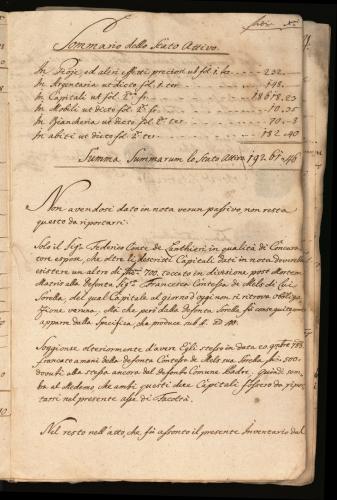 Sommario dello Stato Attivo.
In Gioje, ed altri effetti preciosi ut fol. 1. ter. 232. –
In Argentaria ut dicto fol. 1. ter. 198. –
In Capitali ut fol. 2.
In Mobili ut dicto fol. 2. 10.25
In Biancheria ut dicto fol. 2. ter. 70. 8
In abiti ut dicto fol. 2. ter. 182.40
Summa Summarum lo Stato Attivo
Non avendosi dato in nota verun passivo, non resta
questo da riportarsi.
Solo il Sig. Federico Conte de Lanthieri in qualità di
espone, che oltre li descritti Capitali dati in nota
esistere un altro di 700, toccato in divisione post Mortem
Matris alla defonta Sig. Francesca Contessa de Mels di Lui
Sorella, del qual Capitale al giorno d'oggi non si ritrova
veruna, Mà che però dalla defonta Sorella fù
appare dalla Specifica, che produce sub
Soggionse ulteriormente d'avere Egli stesso in data
francato a mani della defonta Contessa de Mels sua Sorella, 500.
dovuti alla stessa ancora dal defonto Comune Padre,
al Medemo che ambi questi due Capitali
nel presente asse di Facoltà.
Nel resto nell'atto, che fù assonto il presente Inventario dal